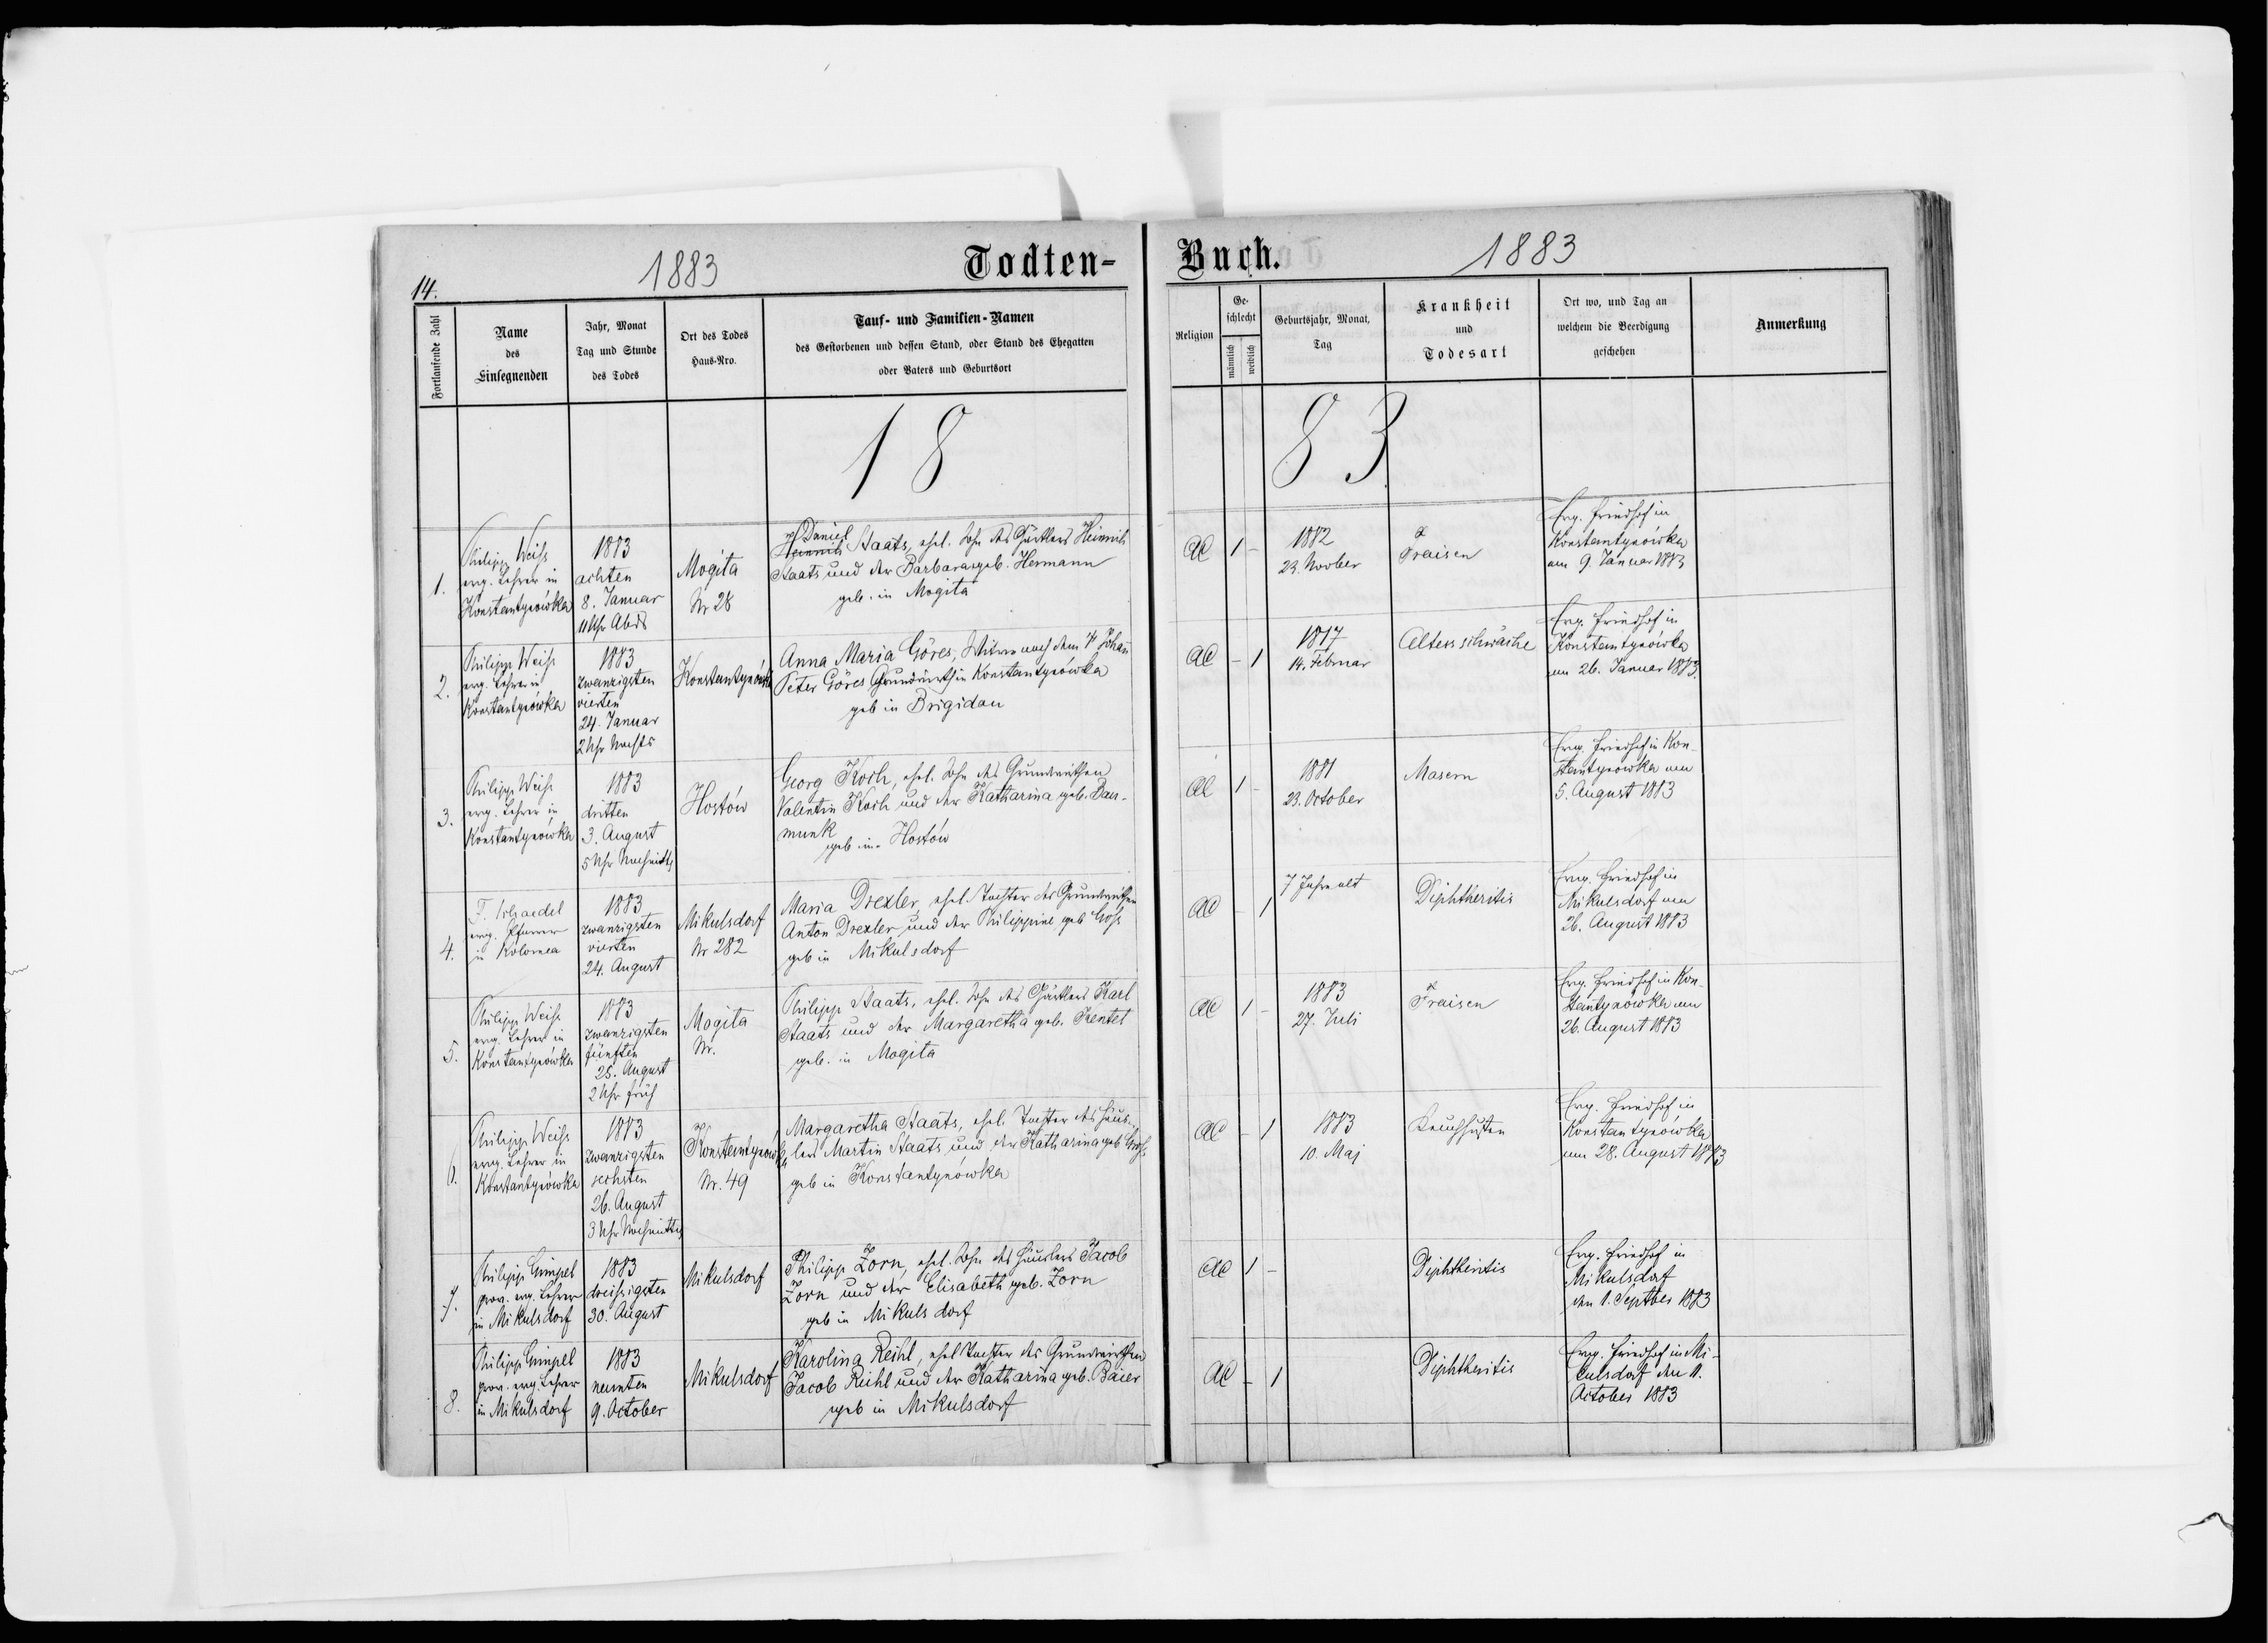 14.
1883
Todten-
Buch.
1883
Fortlaufende Zahl
Name
des
Einsegnenden
Jahr, Monat
Tag und Stunde
des Todes
Ort des Todes
Haus-Nro.
Tauf- und Familien-Namen
des Gestorbenen und dessen Stand, oder Stand des Ehegatten
oder Vaters und Geburtsort
Religion
Ge-
schlecht
männlich
weiblich
Geburtsjahr, Monat,
Tag
Krankheit
und
Todesart
Ort wo, und Tag an
welchem die Beerdigung
geschehen
Anmerkung
18
83
1.
Philipp Weiß
evg. Lehrer in
Konstantynówka
1883
achten
8. Januar
11 Uhr Abds
Mogita
Nr 28
Daniel
Heinrich Staats, ehel. Sohn des Gärtlers Heinrich
Staats und der Barbara geb. Hermann
geb. in Mogita
AC
1
-
1882
23. Novber
Fraisen
Evg. Friedhof in
Konstantynówka
am 9. Januar 1883
2.
Philipp Weiß
evg. Lehrer in
Konstantynówka
1883
zwanzigsten
vierten
24. Januar
2 Uhr Nachts
Konstantynówka
Anna Maria Göres, Witwe nach dem Johan
Peter Göres Grundwirth in Konstantynówka
geb in Brigidau
AC
-
1
1817
14. Februar
Altersschwäche
Evg. Friedhof in
Konstantynówka
am 26. Januar 1883.
3.
Philipp Weiß
evg. Lehrer in
Konstantynówka
1883
dritten
3. August
5 Uhr Nachmitts
Hostów
Georg Koch, ehel. Sohn des Grundwirthen
Valentin Koch und der Katharina geb. Dau-
munk
geb. in Hostów
AC
1
-
1881
23. October
Masern
Evg. Friedhof in Kon-
stantynowka am
5. August 1883
4.
F.
evg. Pfarrer
in Kolomea
1883
zwanzigsten
vierten
24. August
Mikulsdorf
Nr 282
Maria Drexler, ehel. Tochter des Grundwirthen
Anton Drexler und der Philippine geb Groß
geb in Mikulsdorf
AC
-
1
7 Jahre alt
Diphtheritis
Evg. Friedhof in
Mikulsdorf am
26. August 1883
5.
Philipp Weiß
evg. Lehrer in
Konstantynówka
1883
zwanzigsten
fünften
25. August
2 Uhr früh
Mogita
Nr.
Philipp Staats, ehel. Sohn des Gärtlers Karl
Staats und der Margaretha geb. Kentel
geb. in Mogita
AC
1
-
1883
27. Juli
Fraisen
Evg. Friedhof in Kon-
stantynówka am
26. August 1883
6.
Philipp Weiß
evg. Lehrer in
Konstantynówka
1883
zwanzigsten
sechsten
26. August
3 Uhr Nachmittag
Konstantynówka
Nr. 49
Margaretha Staats, ehel. Tochter des Häus-
lers Martin Staats und der Katharina geb Groß
geb in Konstantynówka
AC
-
1
1883
10. Maj
Keuchhusten
Evg. Friedhof in
Konstantynówka
am 28. August 1883
7.
Philipp Gimpel
prov. evg. Lehrer
in Mikulsdorf
1883
dreißigsten
30. August
Mikulsdorf
Philipp Zorn, ehel. Sohn des Häuslers Jacob
Zorn und der Elisabeth geb. Zorn
geb in Mikulsdorf
AC
1
-
Diphtheritis
Evg. Friedhof in
Mikulsdorf
den 1. Septber 1883
8.
Philipp Gimpel
prov. evg. Lehrer
in Mikulsdorf
1883
neunten
9. October
Mikulsdorf
Karolina Reihl, ehel Tochter des Grundwirthen
Jacob Reihl und der Katharina geb. Baier
geb in Mikulsdorf
AC
-
1
Diphtheritis
Evg. Friedhof in Mi-
kulsdorf den 11.
October 1883